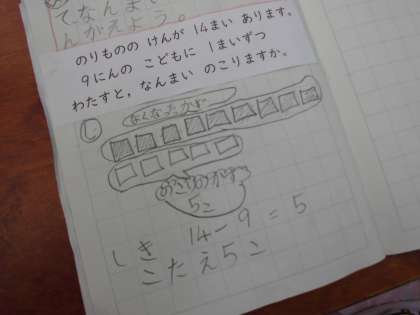 てなんまい
んがえよう。
のりものの けんが 14まい あります。
9にんの こどもに 1まいずつ
わたすと，なんまい のこりますか。
①
なくなったかず
のこりのかず
5こ
しき 14－9＝5
こたえ5こ